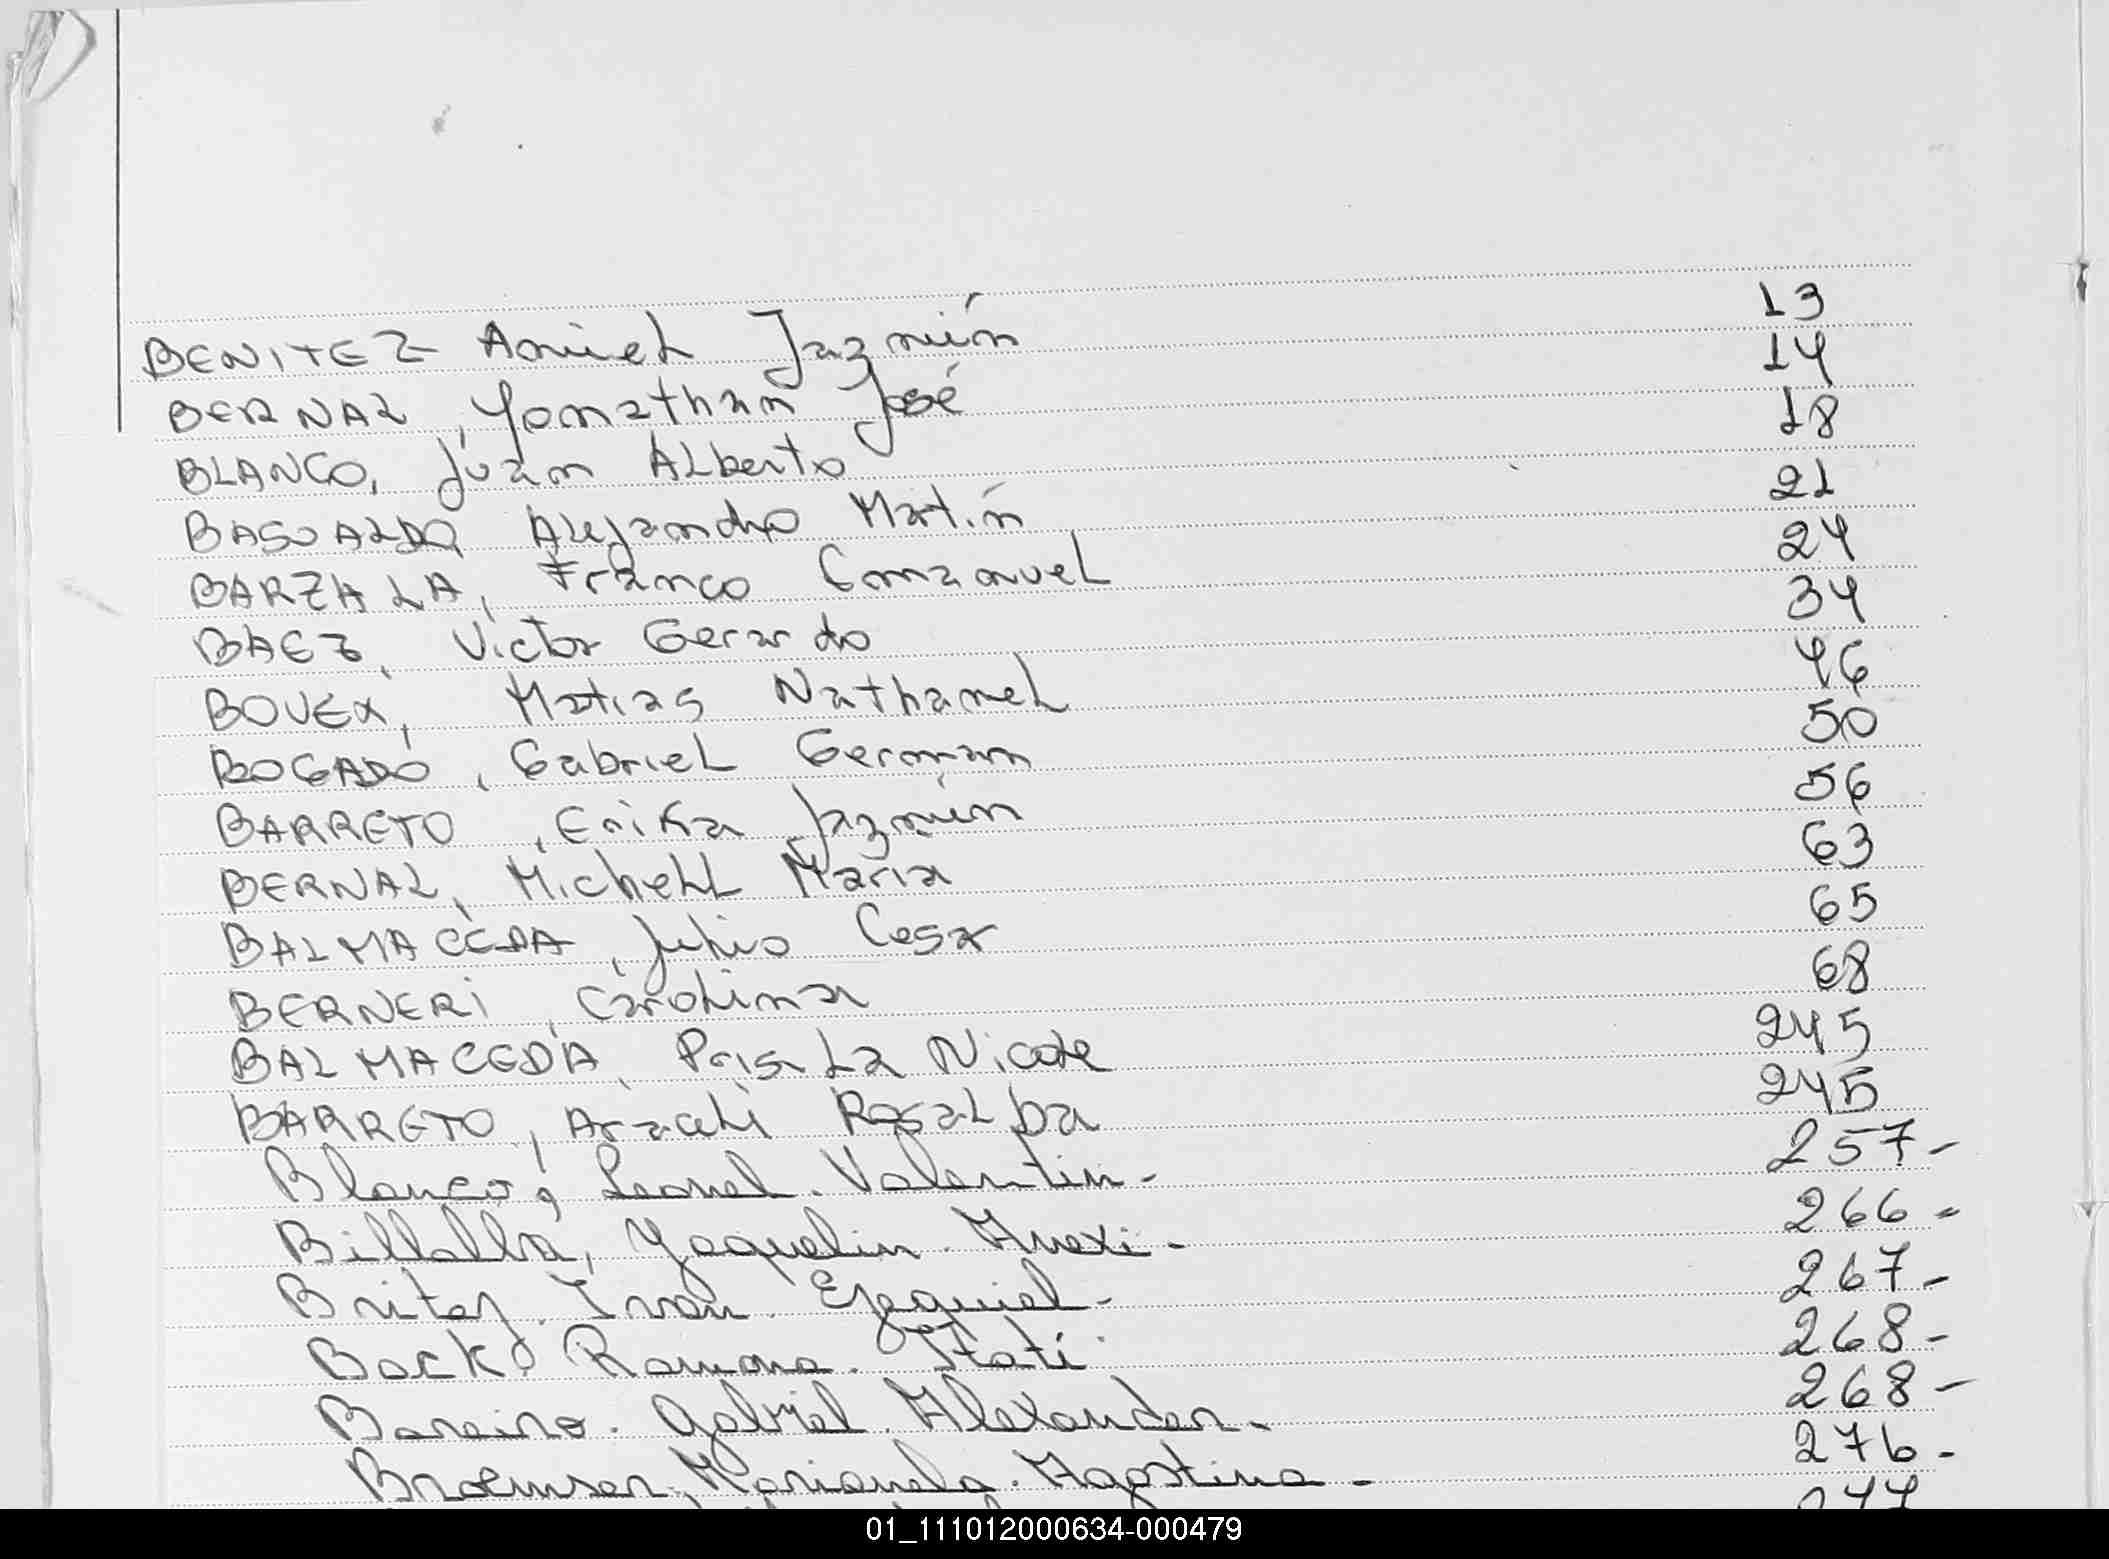 BENITEZ Amiel Jazmín 13
BERNAL, Yonathan José 14
BLANCO, Juan Alberto 18
BASUALDO, Alejandro Martín 21
BARZALA, Franco Emanuel 24
BAEZ, Victor Gerardo 34
BOVEX, Matias Nathanel 46
BOGADO, Gabriel German 50
BARRETO, Erika Jazmín 56
BERNAL, Michell Maria 63
BALMACEDA, Julio Cesar 65
BERNERI, Carolina 68
BALMACEDA, Prisila Nicole 245
BARRETO, Araceli Rosalba 245
Blanco, Leonel. Valentin- 257-
Billalba, Yaquelin. Anexi- 266-
Britez. Ivan. Ezequiel- 267-
Back, Romina. Itati 268-
Bareiro. Gabriel. Alexander- 268-
Broemser, Marianela. Agostina- 276-
277
01_111012000634-000479